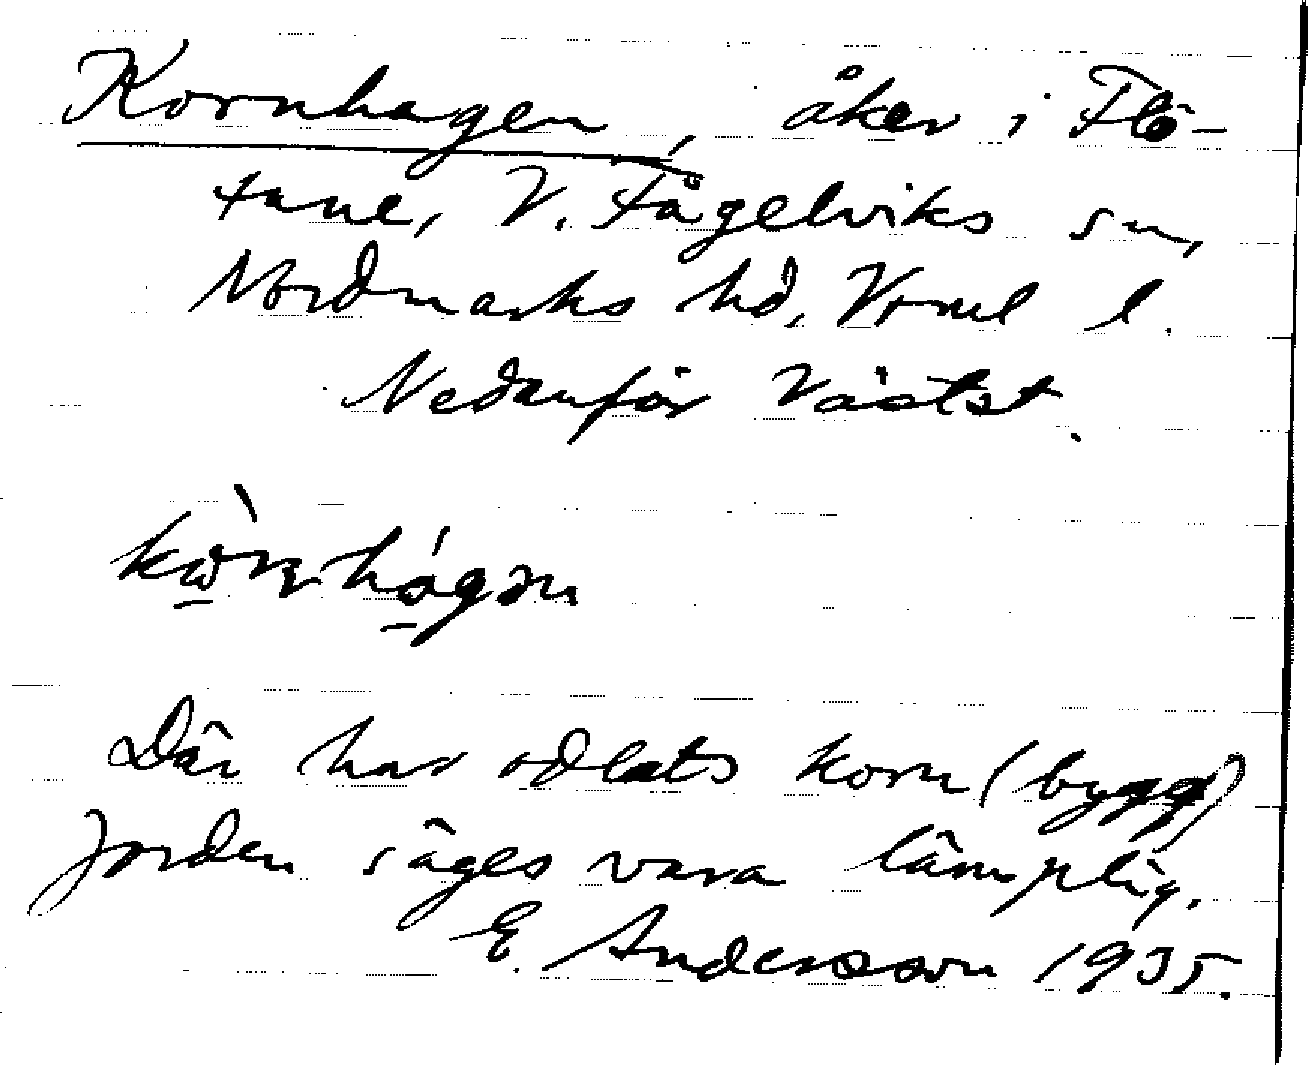 Kornhagen, åker i Flö-
tane, V. Fågelviks sn,
Nordmarks hd, Vrml l.
Nedanför Västst.
kòrnhágən
Där har odlats korn (bygg)
Jorden säges vara lämplig.
E. Andersson 1935.